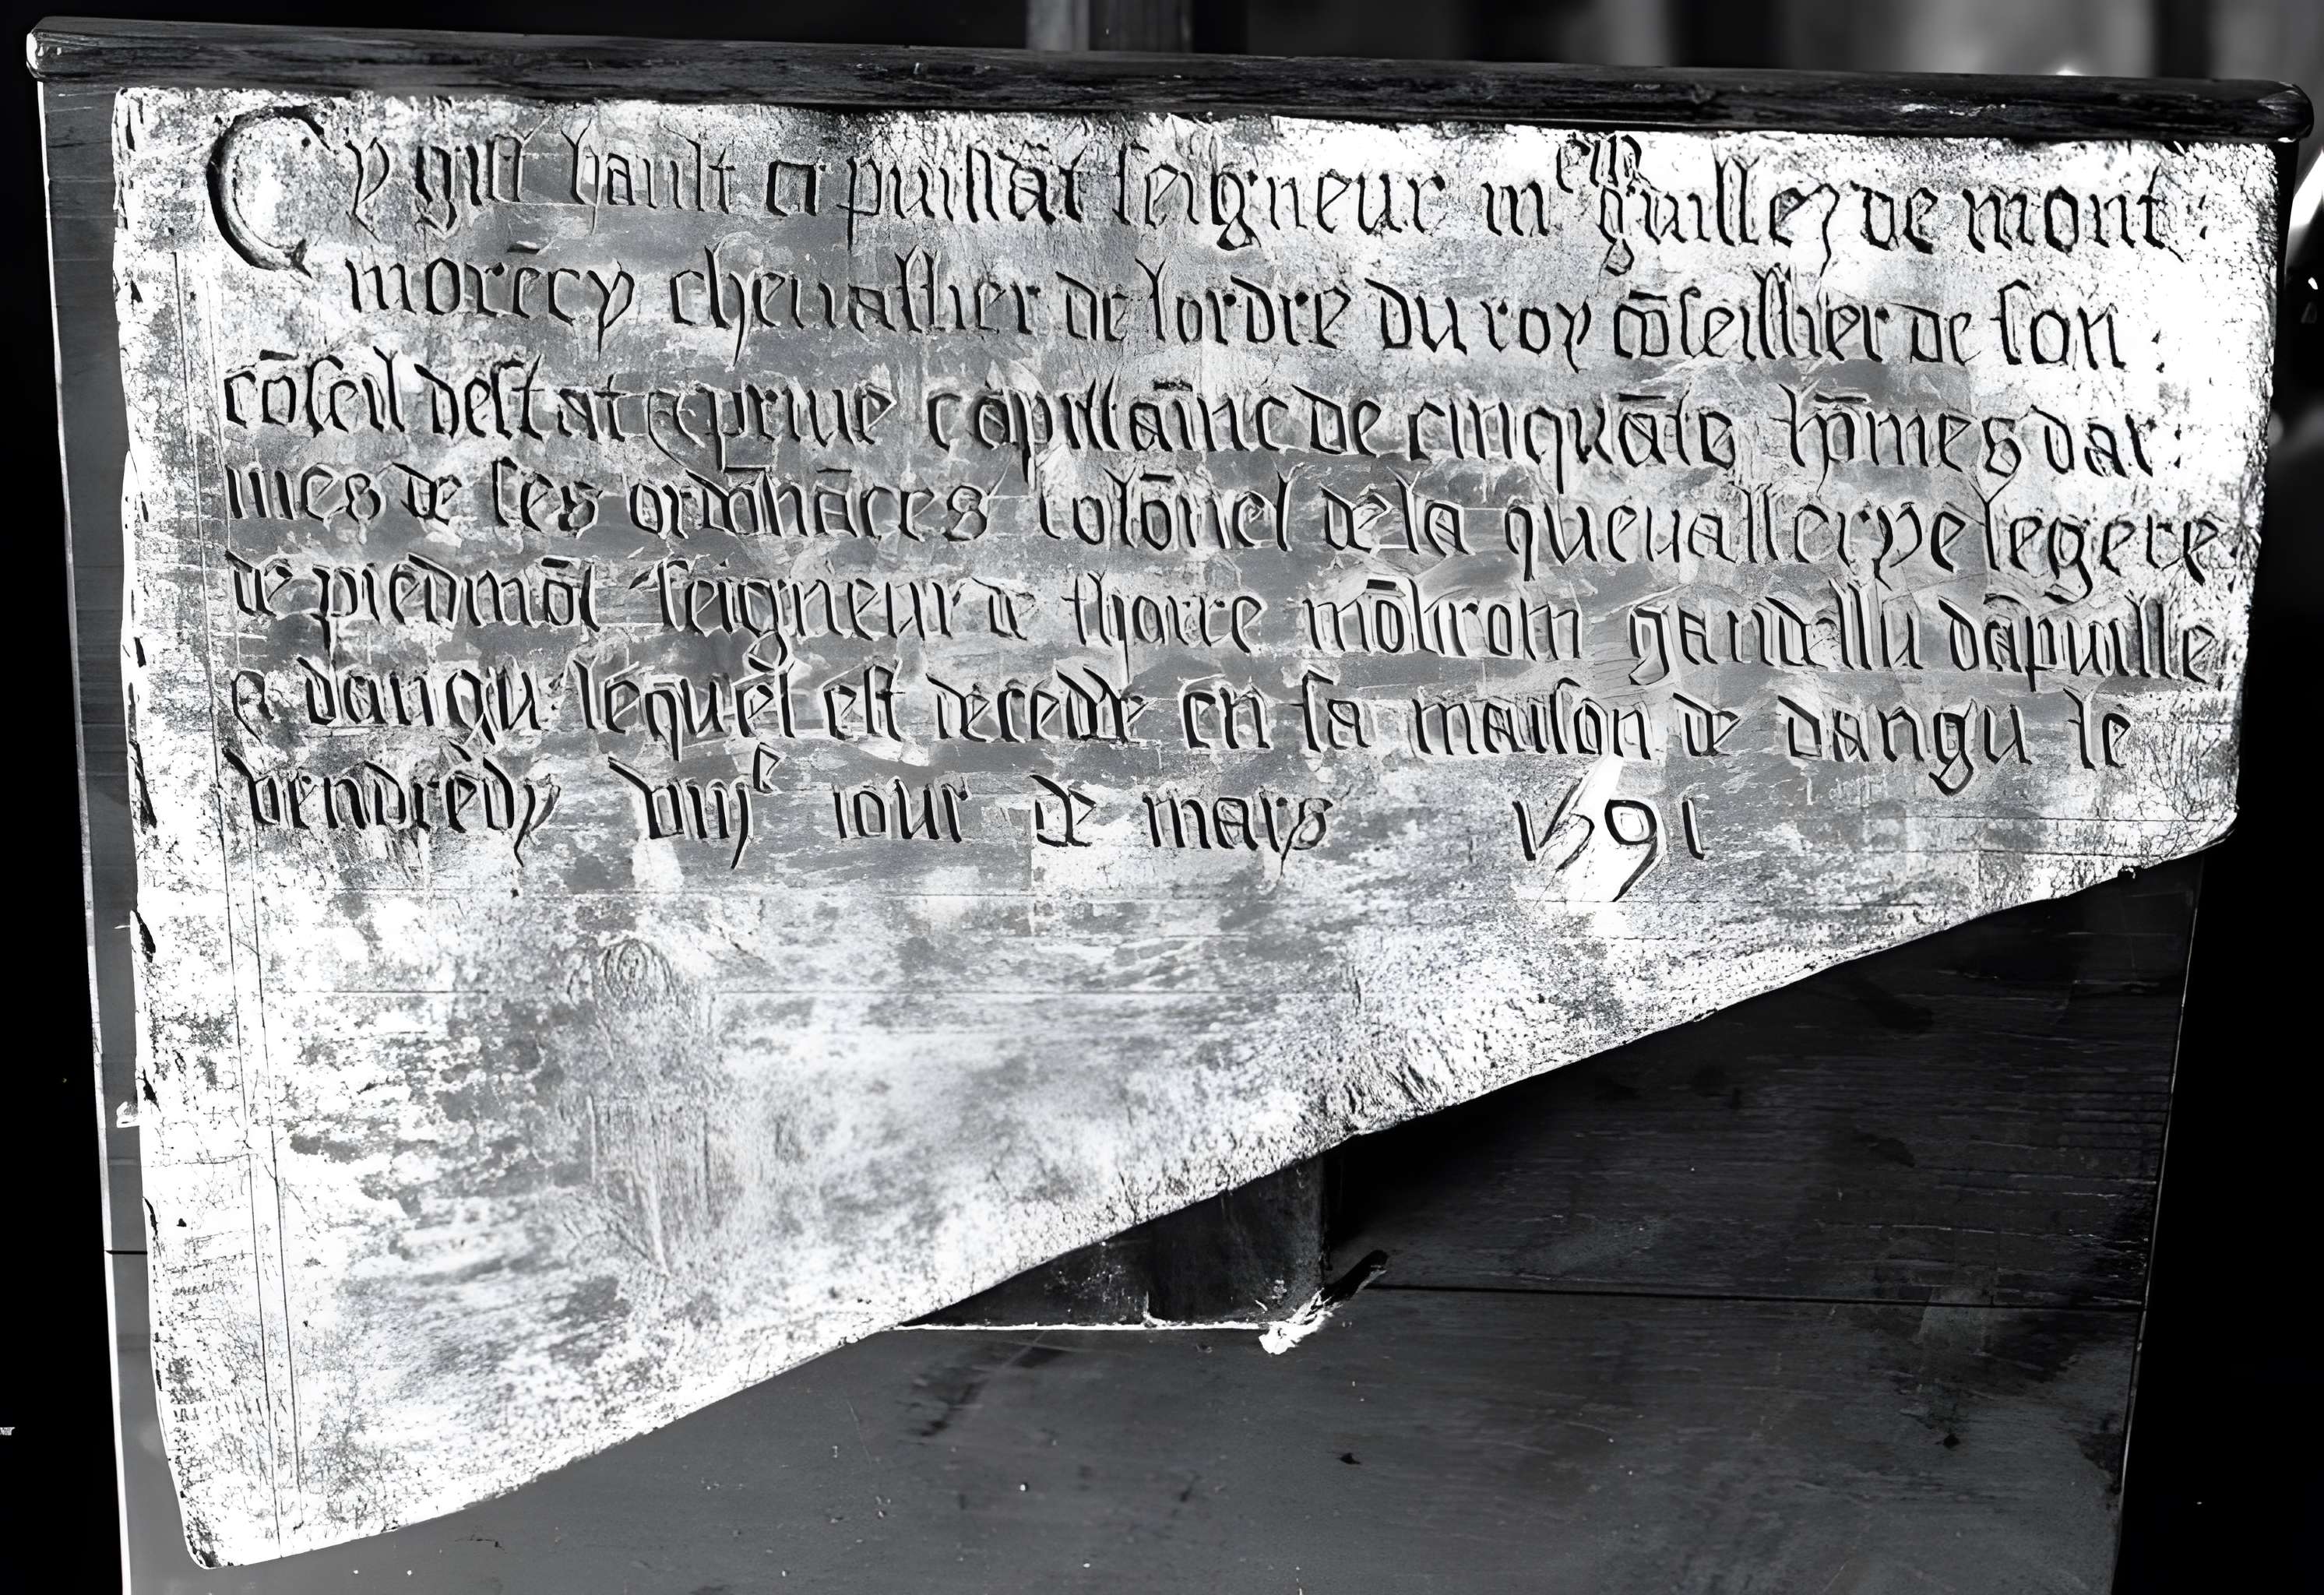 Cy gist hault et puissāt seigneur mre guille de mont
morēcy cheuallier de lordre du roy cōseillier de son
cōseil destat & priue cappitaīne de cinquāte hōmes dar
mes de ses ordōnāces Colōnel de la queuallerye legere
de piedmōt seigneur de thorre mōbron gandellu dāpuille
& dangu lequel est decedde en sa maison de dangu le
vendredy viije iour de mars 1591